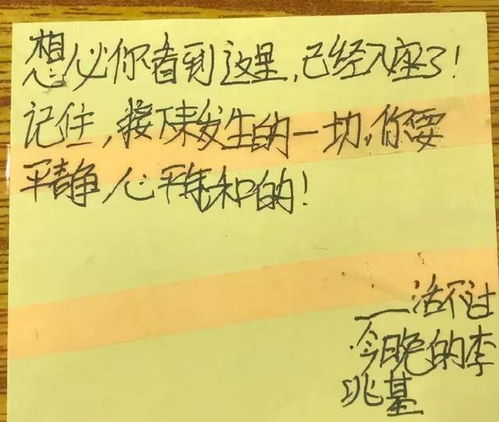 想必你看到这里,已经入座了!
记住,接下来发生的一切,你要
平静 心平气和的!
——活不过
今晚的李
兆基